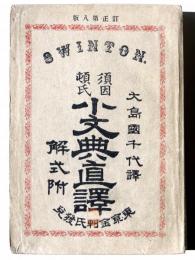 訂正第八版
SWINTON.
大島國千代譯
須因頓氏
小文典直譯
解式附
東京金刺氏發兌